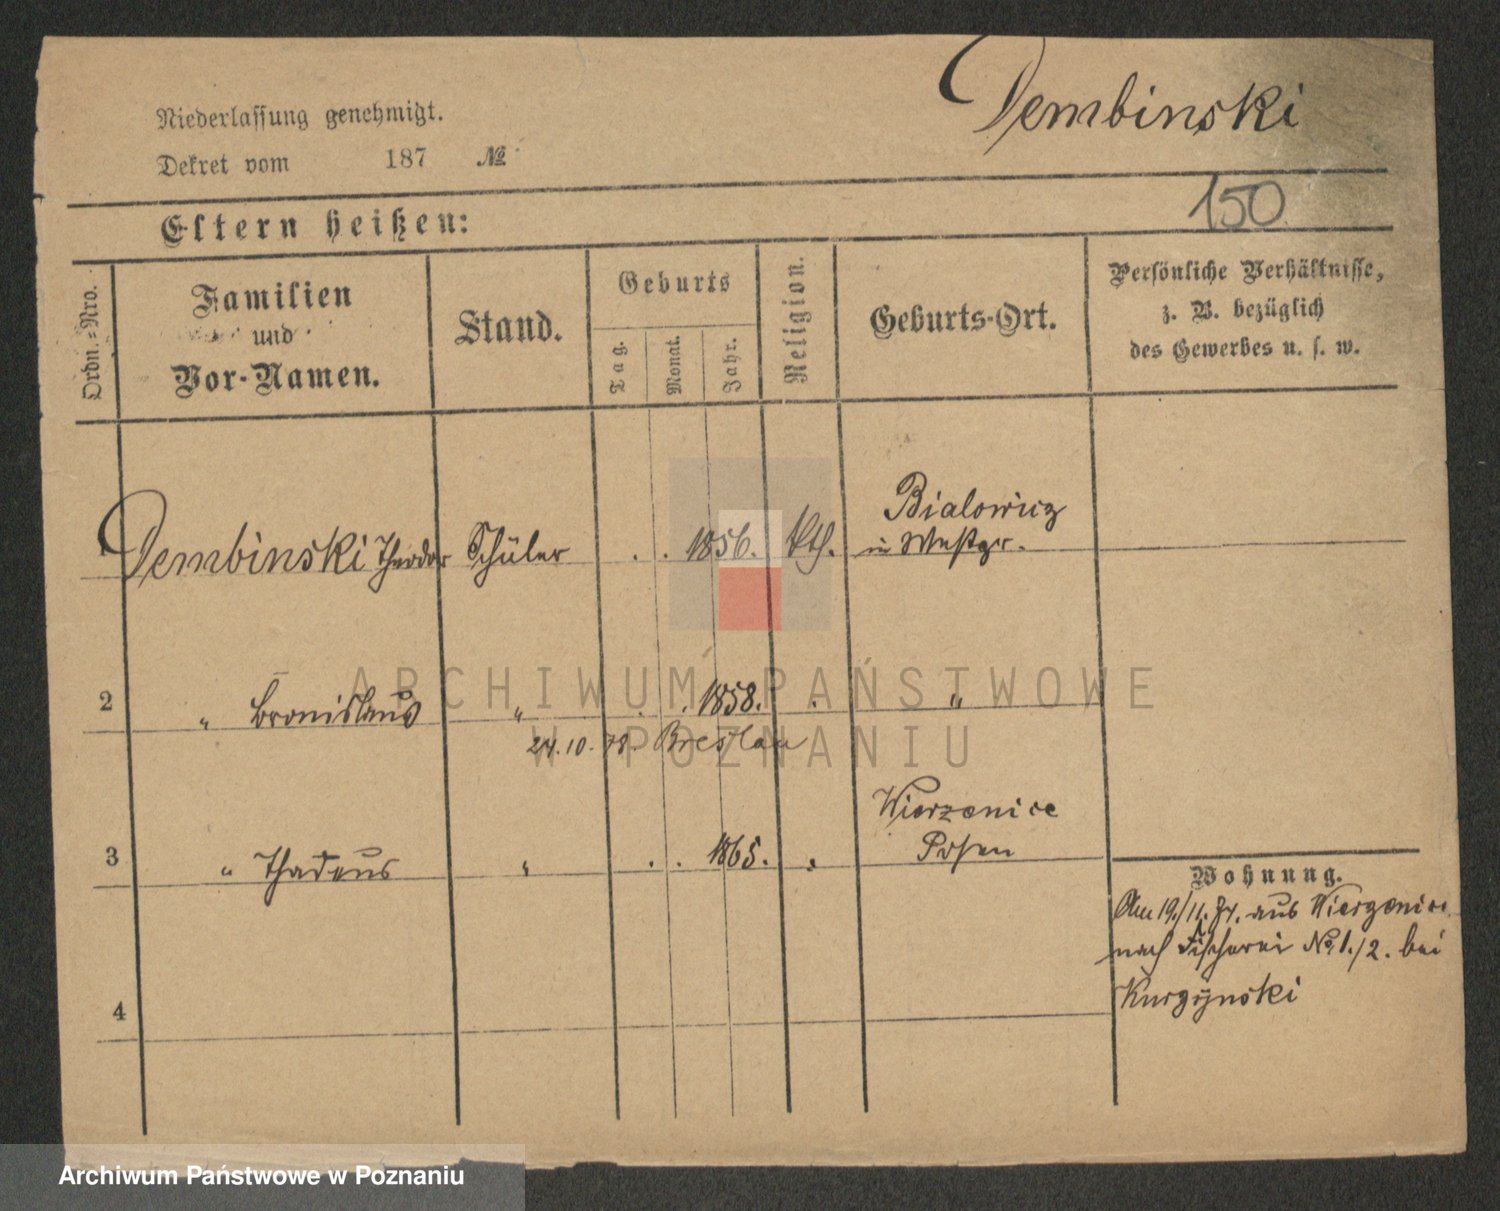 Dembinski
Niederlassung genehmigt.
Dekret vom 187 №
150
Eltern heißen:
Ordn.-Nro.
Familien
und
Vor-Namen.
Stand.
Geburts
Tag.
Monat.
Jahr.
Religion.
Geburts-Ort.
Persönliche Verhältnisse,
z. B. bezüglich
des Gewerbes u. s. w.
Dembinski Theodor Schüler . . 1856. kth. Bialowicz
in Westpr.
2 " Bronislaus " . . 1858. . "
24.10.78. Breslau
3 " Thadeus " . . 1865. " Wierzenice
Posen
Wohnung.
Am 19./11. 74. aus Wierzenice
nach Fischerei No 1./2. bei
Kurzynski
4
ARCHIWUM PAŃSTWOWE
W POZNANIU
Archiwum Państwowe w Poznaniu